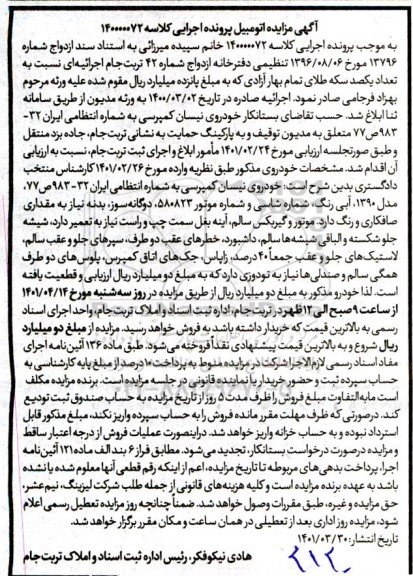 آگهی مزایده اتومبیل پرونده اجرایی کلاسه ۱۴۰۰۰۰۰۷۲
به موجب پرونده اجرایی کلاسه ۱۴۰۰۰۰۰۷۲ خانم سپیده میرزائی به استناد سند ازدواج شماره
۱۳۷۹۶ مورخ ۱۳۹۶/۰۸/۰۶ تنظیمی دفترخانه ازدواج شماره ۴۲ تربت‌جام اجرائیه‌ای نسبت به
تعداد یکصد سکه طلای تمام بهار آزادی که به مبلغ پانزده میلیارد ریال مقوم شده علیه ورثه مرحوم
بهزاد فرجامی صادر نمود. اجرائیه صادره در تاریخ ۱۴۰۰/۰۳/۰۲ به ورثه مدیون از طریق سامانه
ثنا ابلاغ شد. حسب تقاضای بستانکار خودروی نیسان کمپرسی به شماره انتظامی ایران ۳۲-
۹۸۳ص۷۷ متعلق به مدیون توقیف و به پارکینگ حمایت به نشانی تربت‌جام، جاده یزد منتقل
و طبق صورتجلسه ارزیابی مورخ ۱۴۰۱/۰۲/۲۴ مأمور ابلاغ و اجرای ثبت تربت‌جام، نسبت به ارزیابی
آن اقدام شد. مشخصات خودروی مذکور طبق نظریه وارده مورخ ۱۴۰۱/۰۲/۲۶ کارشناس منتخب
دادگستری بدین شرح است: خودروی نیسان کمپرسی به شماره انتظامی ایران ۳۲-۹۸۳ص۷۷،
مدل ۱۳۹۰، آبی رنگ، شماره شاسی و شماره موتور ۵۸۰۸۲۳، دوگانه‌سوز، بدنه نیاز به مقداری
صافکاری و رنگ دارد. موتور و گیربکس سالم، آینه بغل سمت چپ و راست نیاز به تعمیر دارد، شیشه
جلو شکسته و الباقی شیشه‌ها سالم، داشبورد، خطرهای عقب دو طرف، سپرهای جلو و عقب سالم،
لاستیک‌های جلو و عقب جمعاً ۴۰ درصد، زاپاس، جک‌های اتاق کمپرس، پلوس‌های دو طرف
همگی سالم و صندلی‌ها نیاز به تودوزی دارد که به مبلغ دو میلیارد ریال ارزیابی و قطعیت یافته
است. لذا خودرو مذکور به مبلغ دو میلیارد ریال از طریق مزایده در روز سه‌شنبه مورخ ۱۴۰۱/۰۴/۱۴
از ساعت ۹ صبح الی ۱۲ ظهر در تربت‌جام، اداره ثبت اسناد و املاک تربت‌جام، واحد اجرای اسناد
رسمی به بالاترین قیمت که خریدار داشته باشد به فروش خواهد رسید. مزایده از مبلغ دو میلیارد
ریال شروع و به بالاترین قیمت پیشنهادی نقداً فروخته می‌شود. طبق ماده ۱۳۶ آئین‌نامه اجرای
مفاد اسناد رسمی لازم‌الاجرا شرکت در مزایده منوط به پرداخت ۱۰ درصد از مبلغ پایه کارشناسی به
حساب سپرده ثبت و حضور خریدار یا نماینده قانونی در جلسه مزایده است. برنده مزایده مکلف
است مابه‌التفاوت مبلغ فروش را ظرف مدت ۵ روز از تاریخ مزایده به حساب صندوق ثبت تودیع
کند. درصورتی که ظرف مهلت مقرر مانده فروش را به حساب سپرده واریز نکند، مبلغ مذکور قابل
استرداد نبوده و به حساب خزانه واریز خواهد شد. دراینصورت عملیات فروش از درجه اعتبار ساقط
و مزایده درصورت درخواست بستانکار، تجدید می‌شود. مطابق فراز ۶ بند الف ماده ۱۲۱ آئین‌نامه
اجرا، پرداخت بدهی‌های مربوطه تا تاریخ مزایده، اعم از اینکه رقم قطعی آنها معلوم شده یا نشده
باشد به عهده برنده مزایده است و کلیه هزینه‌های قانونی از جمله طلب شرکت لیزینگ، نیم‌عشر،
حق مزایده و غیره، طبق مقررات وصول خواهد شد. ضمناً چنانچه روز مزایده تعطیل رسمی اعلام
شود، مزایده روز اداری بعد از تعطیلی در همان ساعت و مکان مقرر برگزار خواهد شد.
تاریخ انتشار: ۱۴۰۱/۰۳/۳۰
هادی نیکوفکر، رئیس اداره ثبت اسناد و املاک تربت‌جام